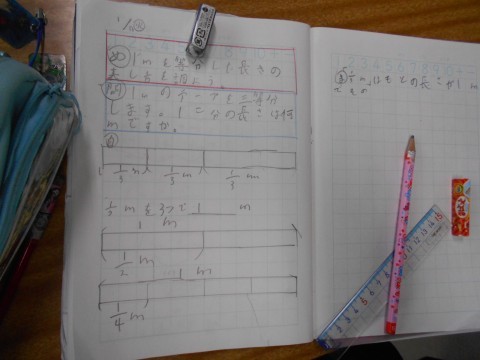 1/
め 1mを等分した長さの
表し方を調べよう。
問 1mのテープを三等分
します。1こ分の長さは何
mですか。
1/3 m 1/3 m 1/3 m
1/3 mを3つで 1 m
1 m
1/2 m
1 m
1/4 m
1/3 mはもとの長さが1m